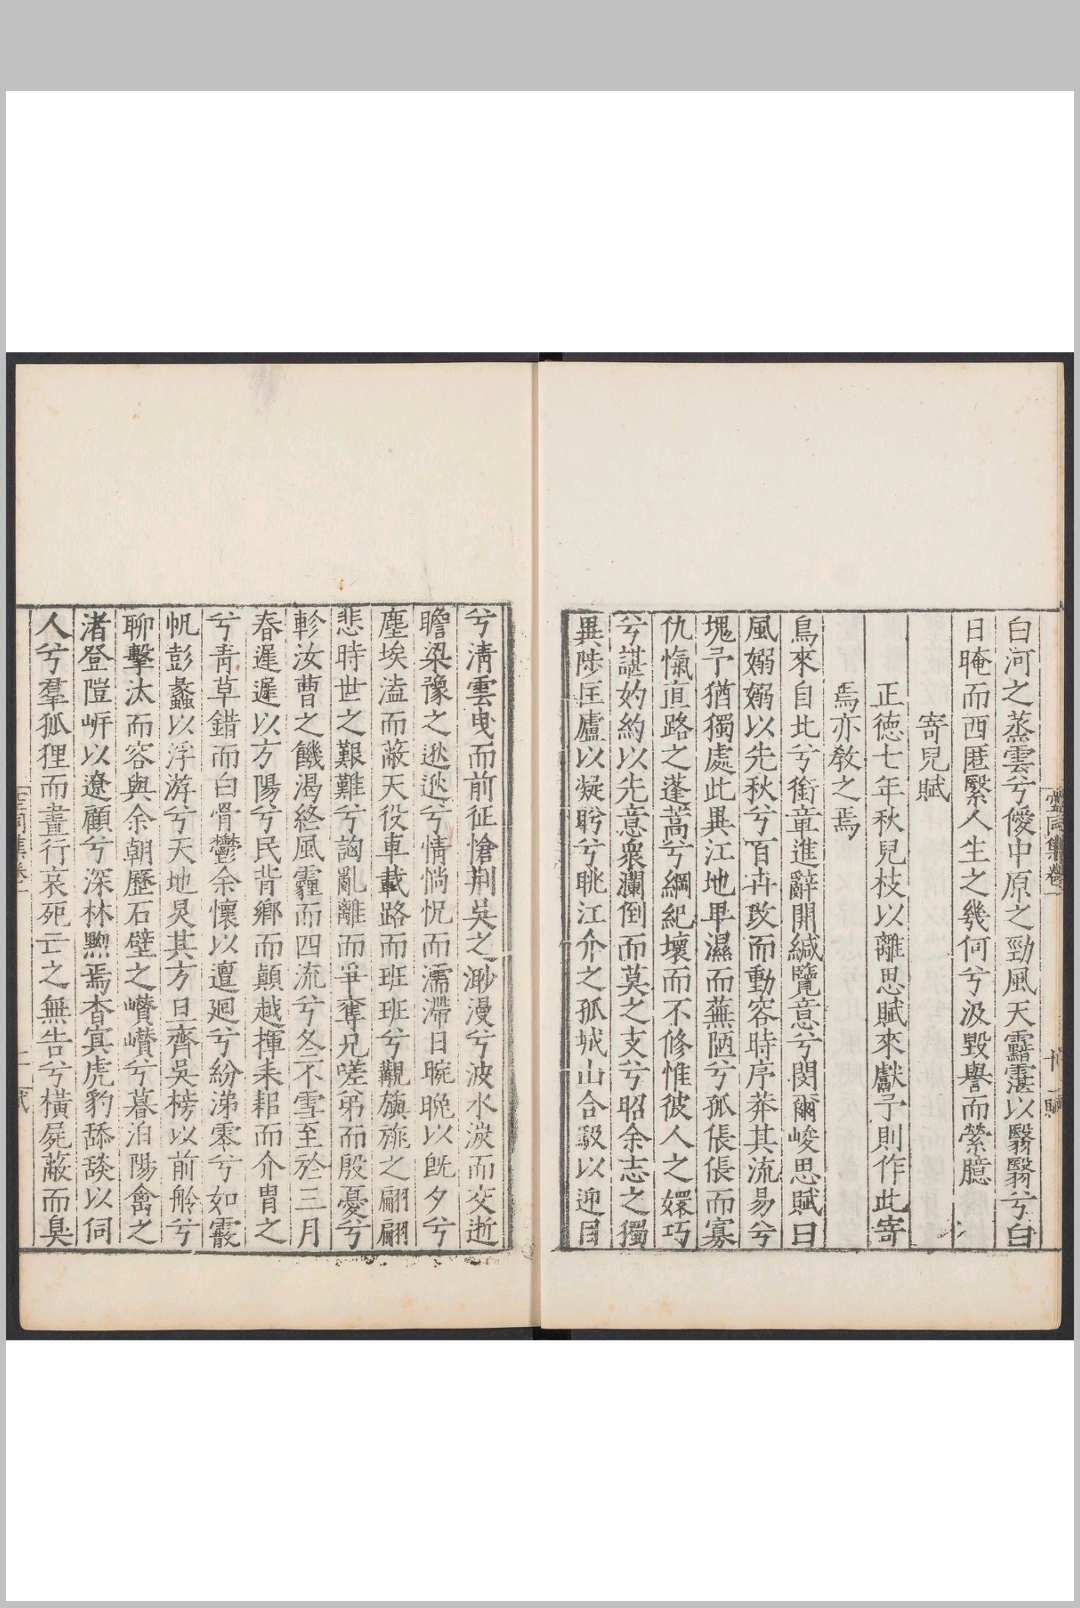 白河之蒸雲兮儍中原之勁風天靄霮以翳翳兮白
日晻而西匿繄人生之幾何兮汲毀譽而縈臆
寄兒賦
正德七年秋兒枝以離思賦來獻予則作此寄
焉亦教之焉
鳥來自北兮銜章進辭開緘覽意兮閔爾峻思賦曰
風嫋嫋以先秋兮百卉茇而動容時序莽其流易兮
塊予猶獨處此異江地卑濕而蕪陋兮孤倀倀而寡
仇愾直路之蓬蒿兮綱紀壞而不修惟彼人之嬛巧
兮諶妁約以先意衆瀾倒而莫之支兮昭余志之獨
異陟匡廬以凝盻兮眺江介之孤城山合翳以迎目
兮淸雲曳而前征愴荆吳之渺漫兮波水淚而交逝
瞻梁豫之逖逖兮情惝怳而濡滯日晼晚以旣夕兮
塵埃溘而蔽天役車載路而班班兮覯旟旐之翩翩
悲時世之艱難兮訩亂離而爭奪兄嗟弟而殷憂兮
軫汝曹之饑渴終風霾而四流兮冬不雪至於三月
春遲遲以方陽兮民背鄉而顚越揮耒耜而介胄之
兮靑草錯而白骨鬱余懷以邅廻兮紛涕零兮如霰
帆彭蠡以浮游兮天地炅其方日齊吳榜以前舲兮
聊擊汰而容與余朝歷石壁之巑巑兮暮泊陽禽之
渚登隑岍以遼顧兮深林黝焉杳冥虎豹舔舕以伺
人兮羣狐狸而晝行哀死亡之無告兮橫屍蔽而臭